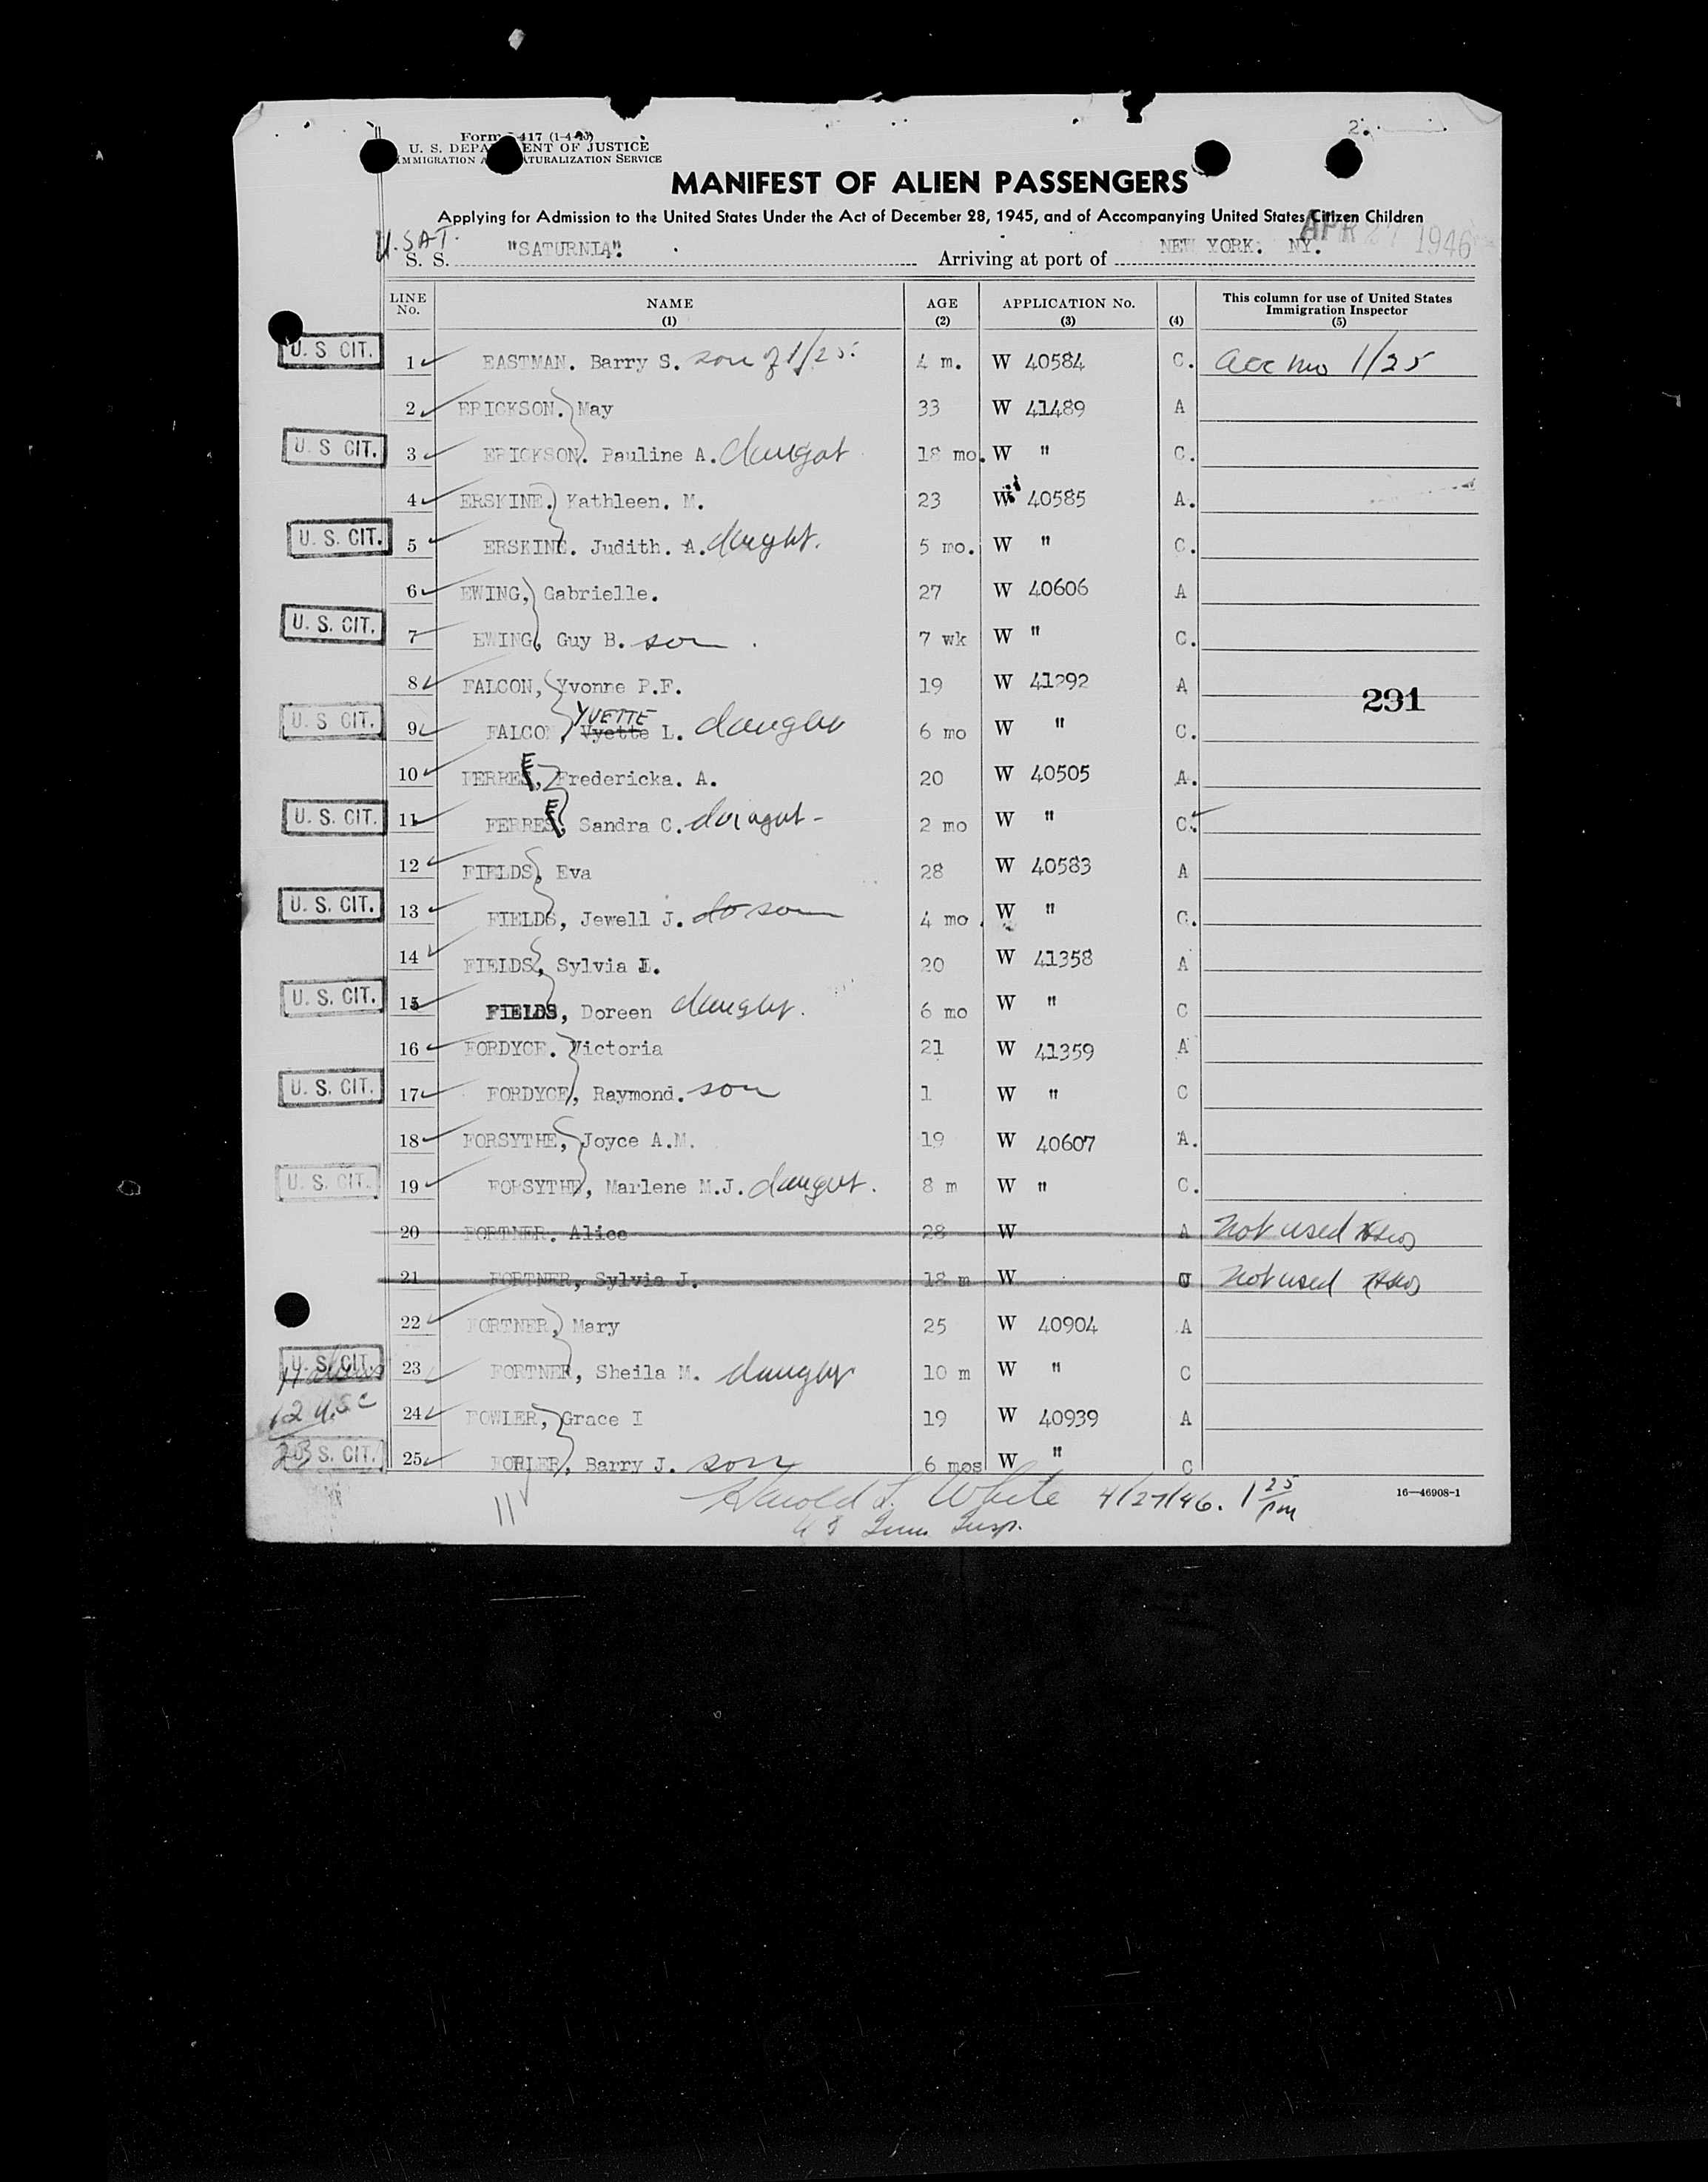 2.
Form I-417 (1-4-46)
U. S. DEPARTMENT OF JUSTICE
IMMIGRATION AND NATURALIZATION SERVICE
MANIFEST OF ALIEN PASSENGERS
Applying for Admission to the United States Under the Act of December 28, 1945, and of Accompanying United States Citizen Children
APR 27 1946
U.S.A.T.
S. S. "SATURNIA". Arriving at port of NEW YORK. NY.
LINE No. NAME (1) AGE (2) APPLICATION No. (3) (4) This column for use of United States Immigration Inspector (5)
U. S CIT. 1 EASTMAN. Barry S. son of 1/25. 4 m. W 40584 C. acc mo 1/25
2 ERICKSON. May 33 W 41489 A
U. S CIT. 3 ERICKSON. Pauline A. daught 18 mo. W " C.
4 ERSKINE. Kathleen. M. 23 W 40585 A.
U. S. CIT. 5 ERSKINE. Judith. A. daught. 5 mo. W " C.
6 EWING, Gabrielle. 27 W 40606 A
U. S. CIT. 7 EWING, Guy B. son. 7 wk W " C.
8 FALCON, Yvonne P.F. 19 W 41292 A
291
YVETTE
U. S CIT. 9 FALCON, Vyette L. daughter 6 mo W " C.
10 FERREE, Fredericka. A. 20 W 40505 A.
U. S. CIT. 11 FERREE, Sandra C. daught- 2 mo W " C.
12 FIELDS, Eva 28 W 40583 A
U. S. CIT. 13 FIELDS, Jewell J. do son 4 mo. W " C.
14 FIELDS, Sylvia L. 20 W 41358 A
U. S. CIT. 15 FIELDS, Doreen daughtr. 6 mo W " C
16 FORDYCE. Victoria 21 W 41359 A
U. S. CIT. 17 FORDYCE, Raymond. son 1 W " C
18 FORSYTHE, Joyce A.M. 19 W 40607 A.
U. S. CIT. 19 FORSYTHE, Marlene M.J. daught. 8 m W " C.
20 FORTNER. Alice 28 W A Not used
21 FORTNER, Sylvia J. 18 m W C Not used
22 FORTNER, Mary 25 W 40904 A
U. S. CIT. 23 FORTNER, Sheila M. daughtr 10 m W " C
11 aliens
12 U.S.C
24 FOWLER, Grace I 19 W 40939 A
23
U. S. CIT. 25 FOWLER, Barry J. son 6 mos W " C
11 Harold L. White 4/27/46. 1 25 pm
16—46908-1
U S Imm Insp.